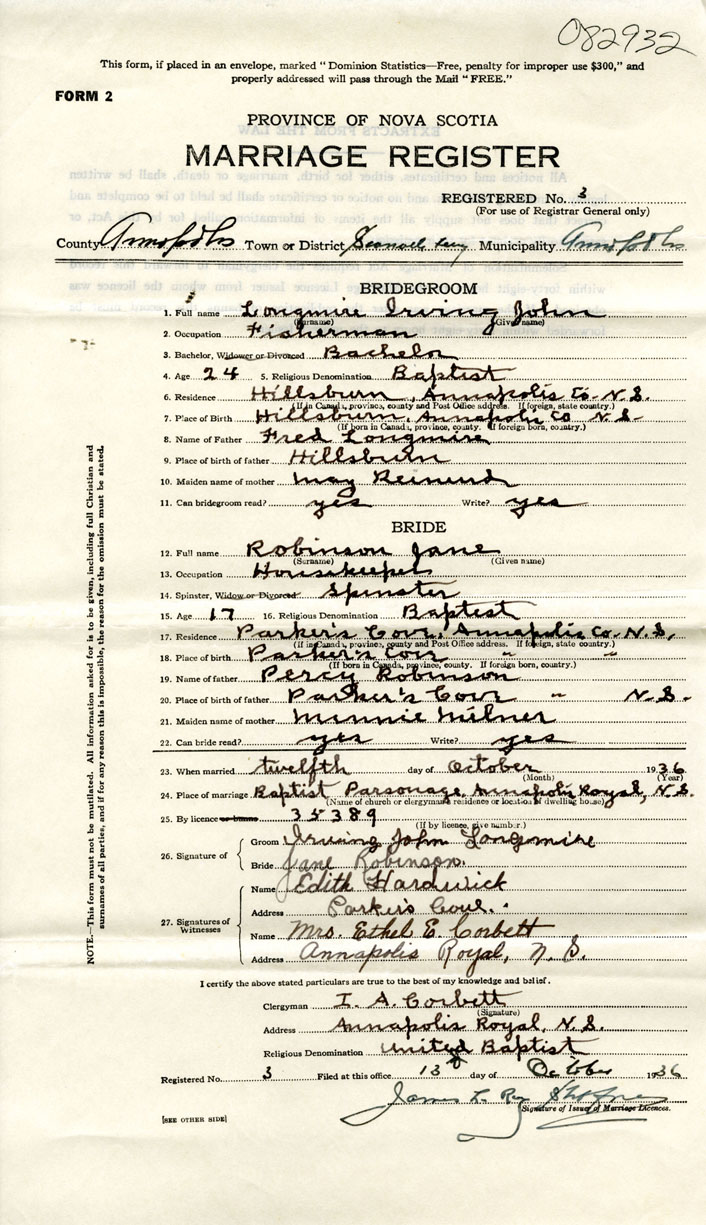 082932
This form, if placed in an envelope, marked "Dominion Statistics—Free, penalty for improper use $300," and
properly addressed will pass through the Mail "FREE."
FORM 2
PROVINCE OF NOVA SCOTIA
MARRIAGE REGISTER
REGISTERED No. 3
(For use of Registrar General only)
County Annapolis Town or District Municipality Annapolis
BRIDEGROOM
1. Full name Longmire Irving John
(Surname) (Given name)
2. Occupation Fisherman
3. Bachelor, Widower or Divorced Bachelor
4. Age 24 5. Religious Denomination Baptist
6. Residence Hillsburn, Annapolis Co. N.S.
(If in Canada, province, county and Post Office address. If foreign, state country.)
7. Place of Birth Hillsburn, Annapolis Co N.S.
(If born in Canada, province, county. If foreign born, country.)
8. Name of Father Fred Longmire
9. Place of birth of father Hillsburn
10. Maiden name of mother May
11. Can bridegroom read? yes Write? yes
BRIDE
12. Full name Robinson Jane
(Surname) (Given name)
13. Occupation Housekeeper
14. Spinster, Widow or Divorced Spinster
15. Age 17 16. Religious Denomination Baptist
17. Residence Parker's Cove, Annapolis Co. N.S.
(if in Canada, province, county and Post Office address. If foreign, state country.)
18. Place of birth Parker's Cove " "
(If born in Canada, province, county. If foreign born, country.)
19. Name of father Percy Robinson
20. Place of birth of father Parker's Cove " N.S.
21. Maiden name of mother Minnie Milner
22. Can bride read? yes Write? yes
23. When married twelfth day of October 1936
(Month) (Year)
24. Place of marriage Baptist Parsonage, Annapolis Royal, N.S.
(Name of church or clergyman's residence or location of dwelling house)
25. By licence or banns 35389
(If by licence, give number.)
26. Signature of Groom Irving John Longmire
Bride Jane Robinson.
27. Signatures of Witnesses Name Edith Hardwick
Address Parker's Cove.
Name Mrs. Ethel E. Corbett
Address Annapolis Royal, N.S.
I certify the above stated particulars are true to the best of my knowledge and belief.
Clergyman I. A. Corbett
(Signature)
Address Annapolis Royal, N.S.
Religious Denomination United Baptist
Registered No. 3 Filed at this office 13th day of October 1936
James L.
Signature of Issuer of Marriage Licences.
[SEE OTHER SIDE]
NOTE.—This form must not be mutilated. All information asked for is to be given, including full Christian and
surnames of all parties, and if for any reason this is impossible, the reason for the omission must be stated.